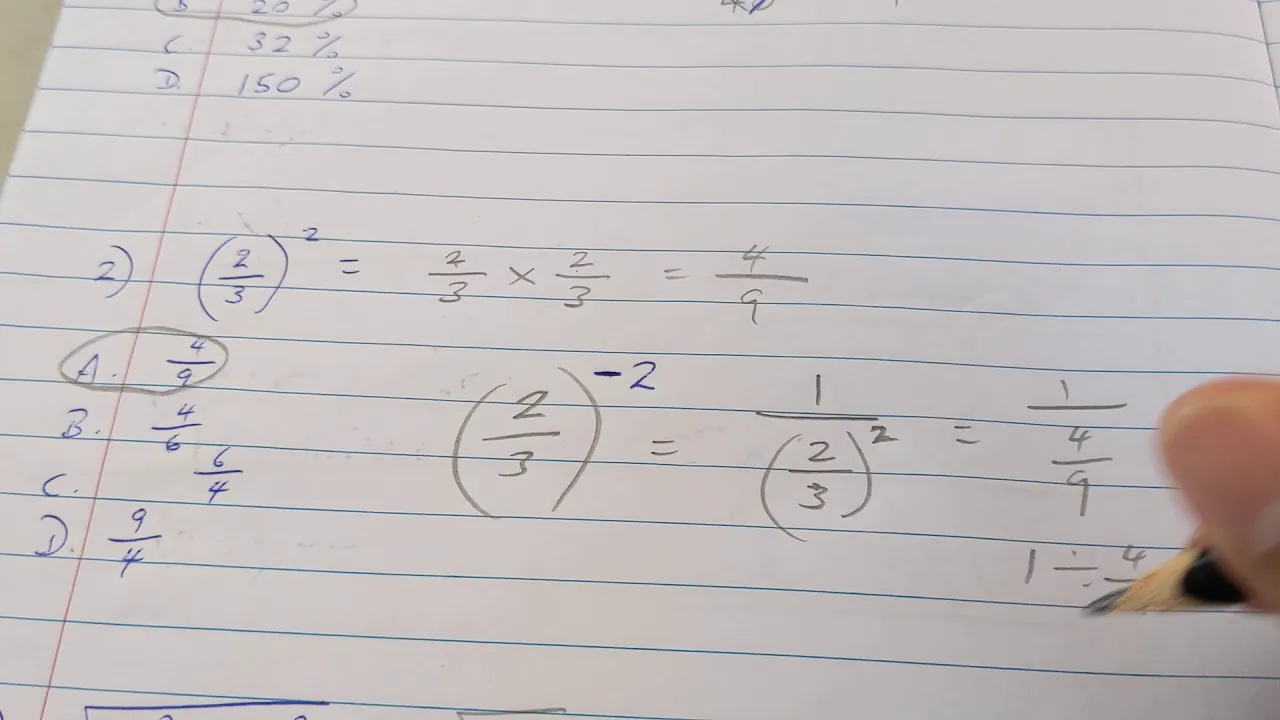 B 20 %
C. 32 %
D. 150 %
2) (2/3)² = 2/3 × 2/3 = 4/9
A. 4/9
B. 4/6
C. 6/4
D. 9/4
(2/3)⁻² = 1/(2/3)² = 1/(4/9)
1 ÷ 4